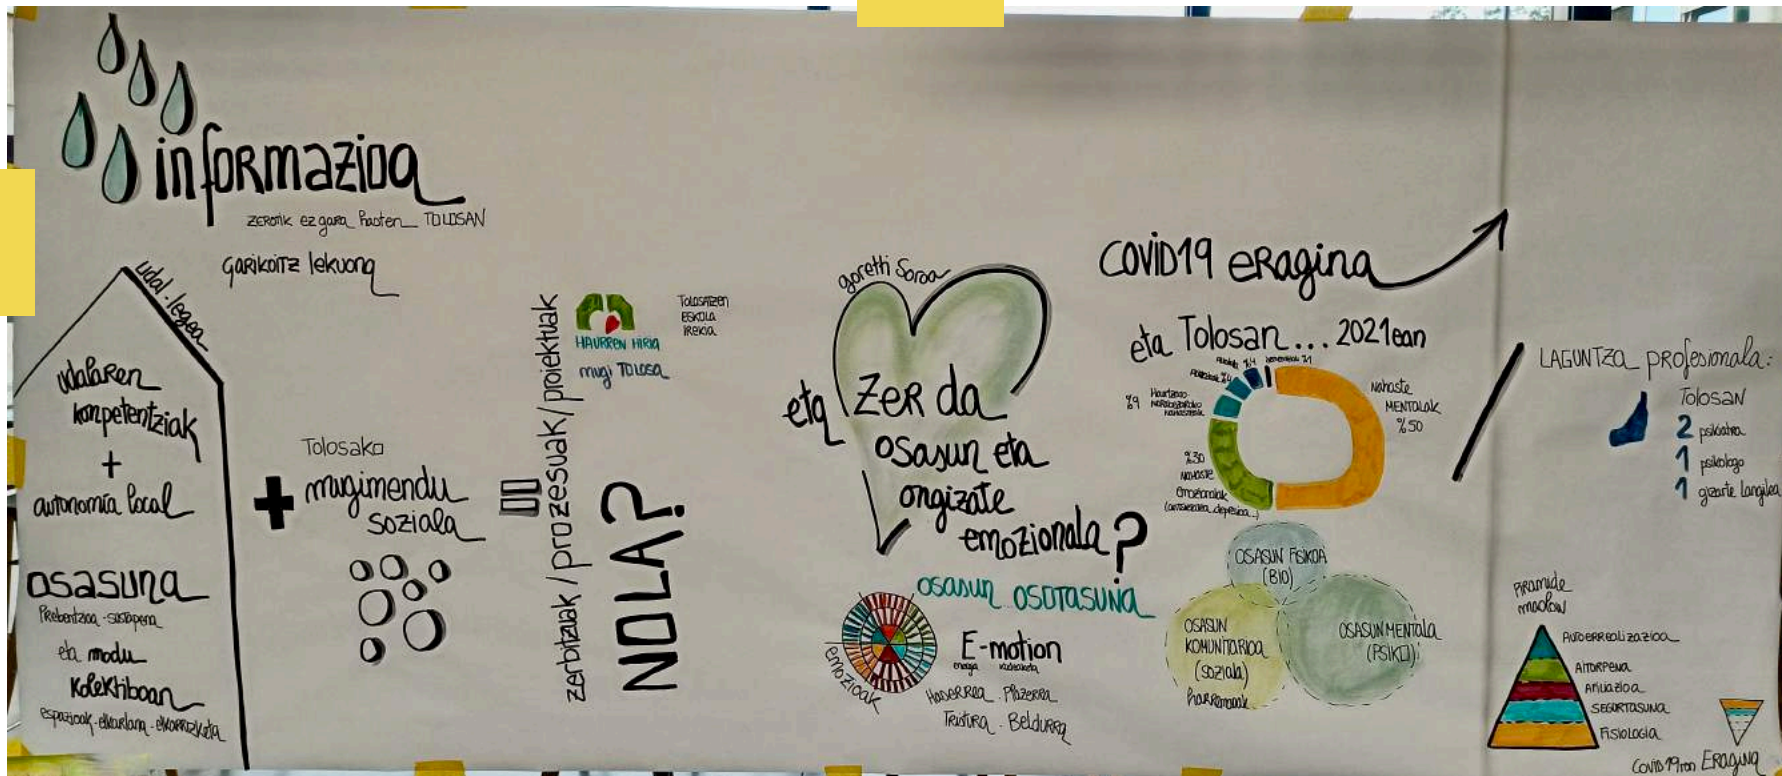 informazioa
ZEROTIK ez gara hasten TOLOSAN
GARIKOITZ lekuona
udal-legea
udalaren
konpetentziak
+
autonomía local
OSASUNA
Prebentzioa - sustapena
eta modu
kolektiboan
espazioak - elkarlana - elkarrizketa
+
Tolosako
mugimendu
soziala
=
zerbitzuak / prozesuak / proiektuak
NOLA?
HAURREN HIRIA
mugi TOLOSA
TOLOSATZEN
ESKOLA
IREKIA
goretti Soroa
eta zer da
osasun eta
ongizate
emozionala?
osasun OSOTASUNA
emozioak
E-motion
energia kudeaketa
Haserrea - Plazerra
Tristura - Beldurra
COVID19 eragina
eta Tolosan... 2021ean
%4
%1
%9
NAHASTE
MENTALAK
%50
%30
NAHASTE
emozionalak
(antsietatea, depresioa..)
OSASUN FISIKOA
(BIO)
OSASUN
KOMUNITARIOA
(SOZIALA)
harremanak
OSASUN MENTALA
(PSIKO)
LAGUNTZA profesionala:
TOLOSAN
2 psikiatra
1 psikologo
1 gizarte langilea
PIRAMIDE
maslow
AUTOERREALIZAZIOA
AITORPENA
AFILIAZIOA
SEGURTASUNA
FISIOLOGIA
COVID 19ren ERAGINA